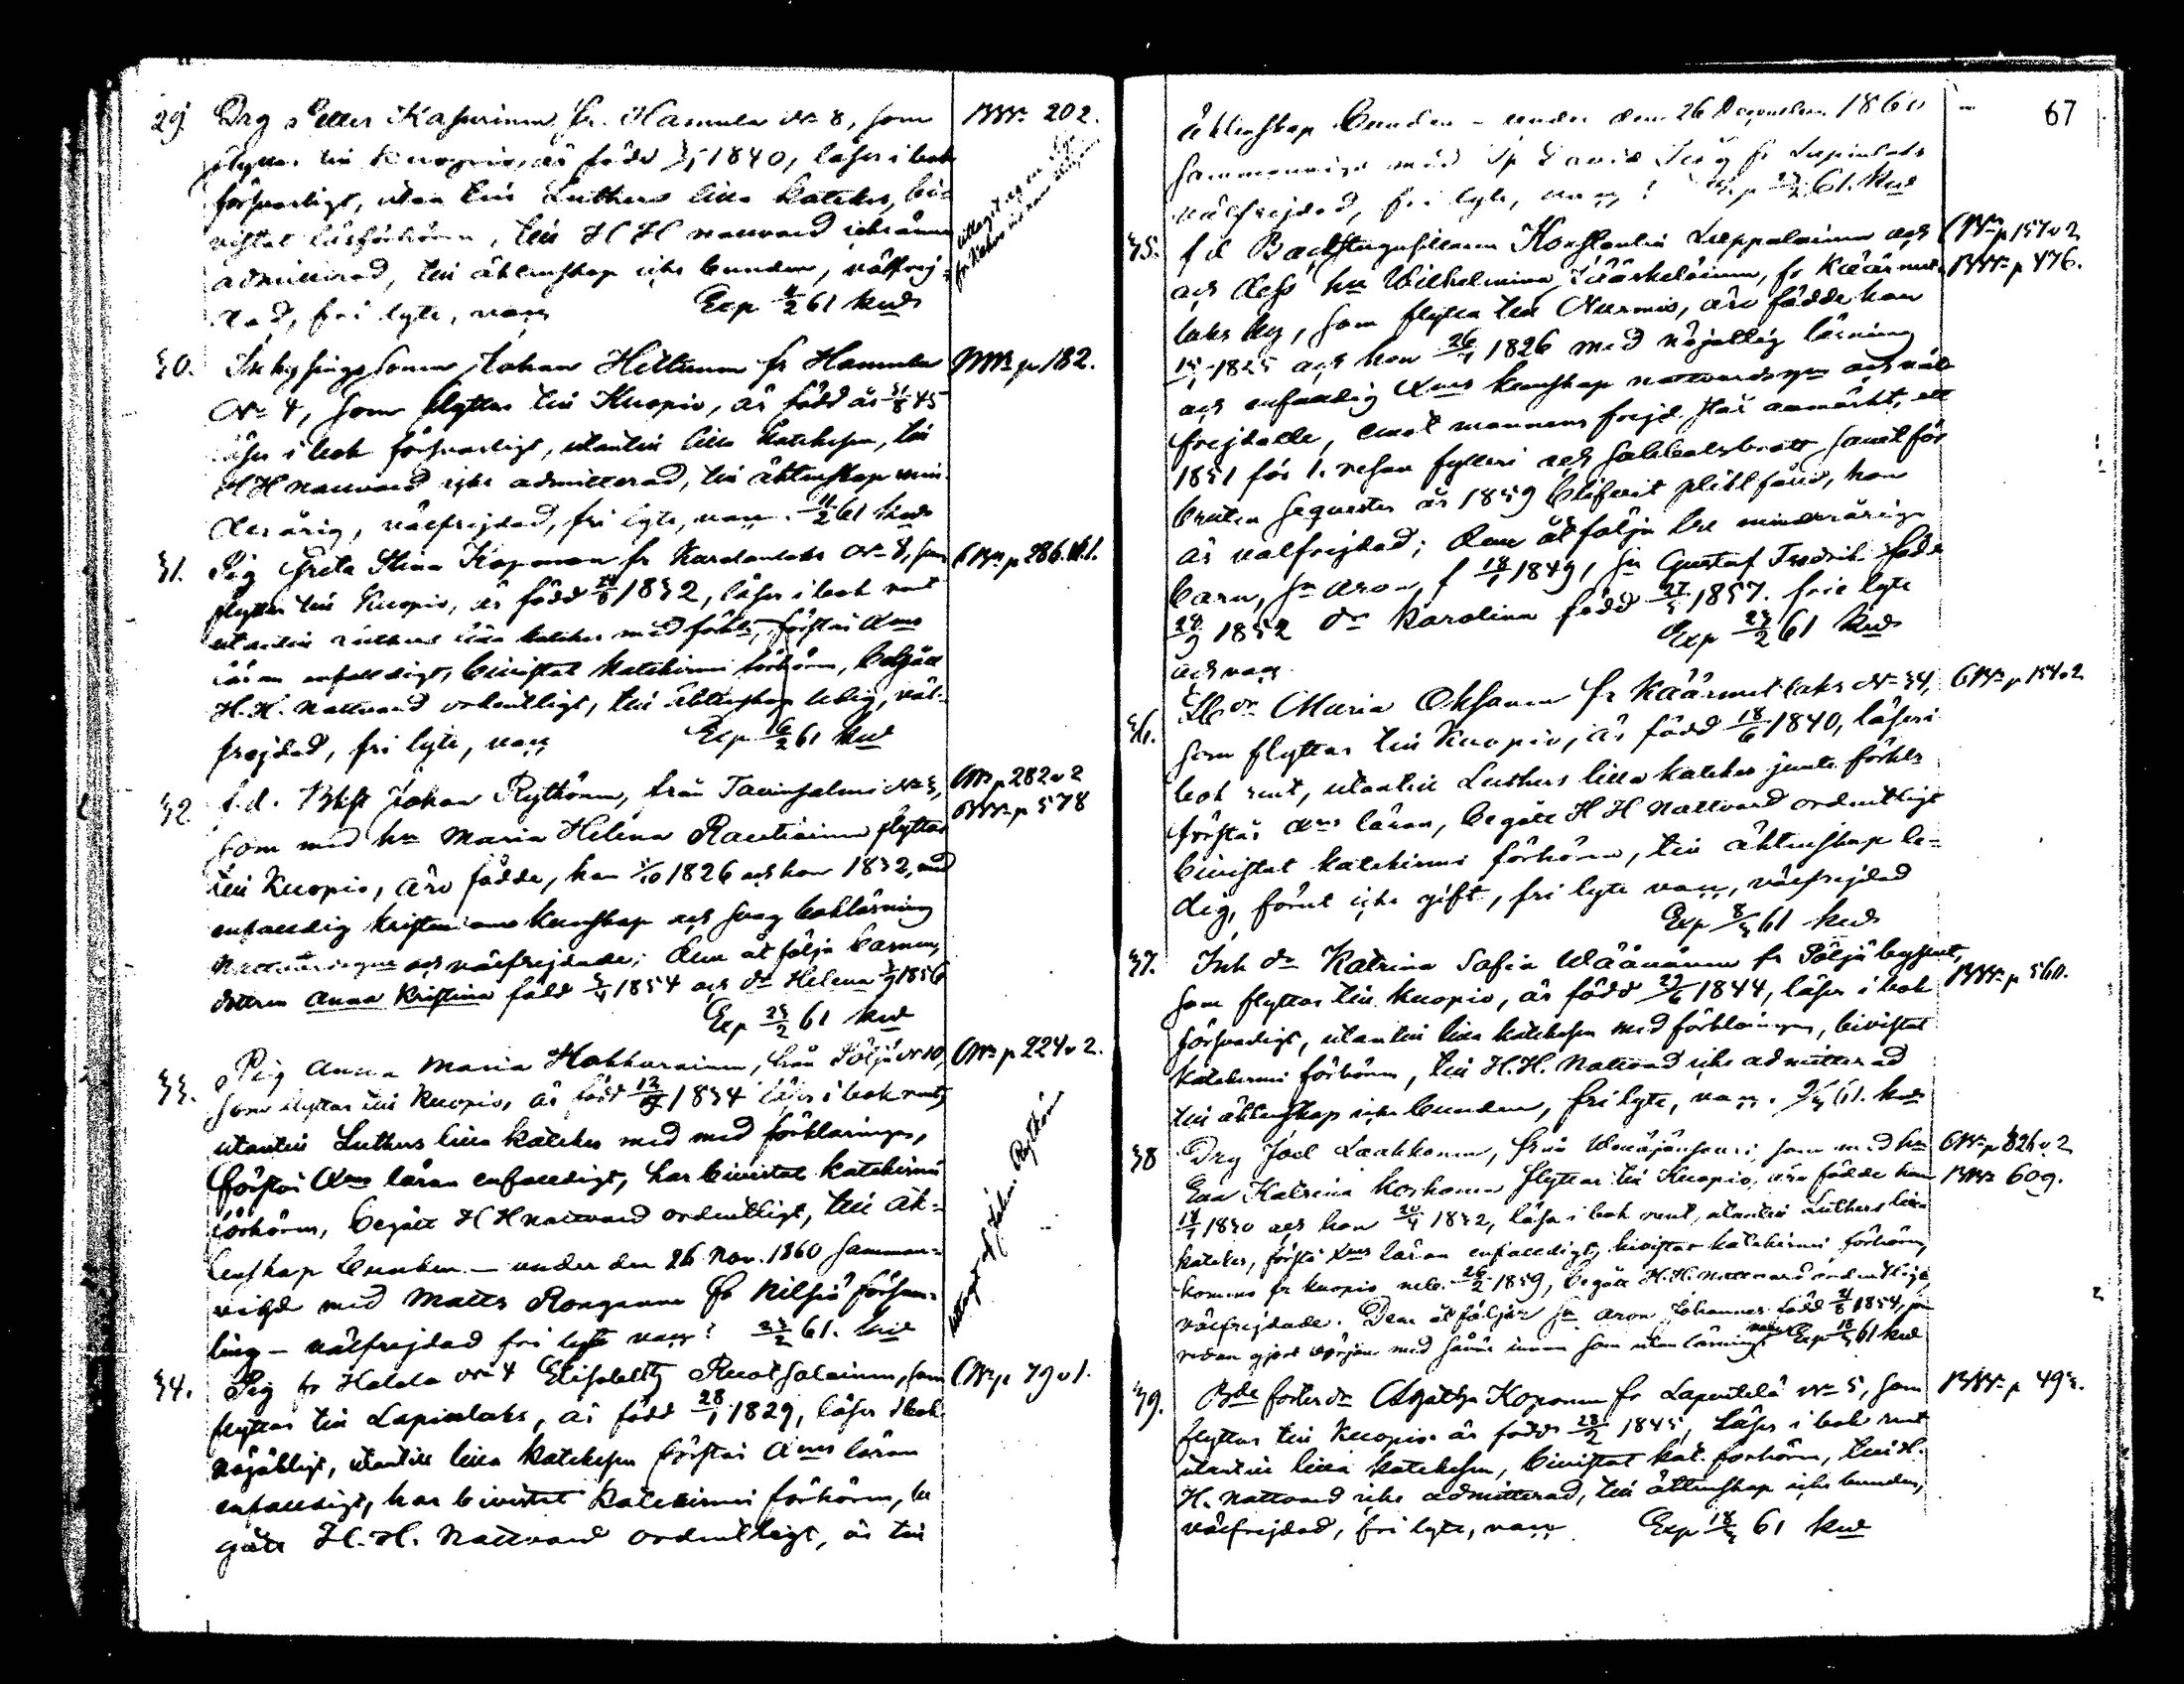 29. Drg Petter Kasurinen fr. Hamula N:o 8, som
flyttar till Kuopio, är född 3/5 1840, läser i bok
försvarligt, utan till Luthers lilla Kateches, bi-
vistat läsförhören, till H H nattvard icke ännu
admitterad, till äktenskap icke bunden, välfrej-
dad, fri lyte, vacc Exp 4/2 61 kwd
202.
30. Inhysings sonen Johan Hiltunen fr Hamula
N:o 4, som flyttar till Kuopio, är född år 31/8 45
läser i bok försvarligt, utantill lilla Katechesen, till
H H nattvard icke admitterad, till äktenskap min-
derårig, välfrejdad, fri lyte, vacc. 11/2 61 kwd
p 182.
31. Pig Greta Stina Koponen fr Kardanlaks N:o 8, som
flyttar till Kuopio, är född 1832, läser i bok rent
utantill Luthers lilla kateches med förkl:, förstår Xnus
läran enfaldigt, bivistat Katekismi förhören, begått
H.H. Nattvard ordentligt, till äktenskap ledig, väl-
frejdad, fri lyte, vacc Exp 16/2 61 kwd
p 286.
32. f.d. Bkst Johan Rythönen, från Tavinsalmi N:o 3,
som med hu Maria Helena Rautiainen flyttar
till Kuopio, äro födde, han 1/10 1826 och hon 1832, med
enfaldig kristendoms kunskap och svag bokläsning
och välfrejdade; dem åtfölja barnen,
dottren Anna Kristina född 3/4 1854 och dr Helena 3/9 1856
Exp 23/2 61 kwd
p 282 v 2
p 578
33. Pig Anna Maria Hakkarainen, från Pöljä N:o 10,
som flyttar till Kuopio, är född 1834 läser i bok rent,
utantill Luthers lilla Kateches med med förklaringen,
förstår Xnus läran enfaldigt, har bivistat katekismi
förhören, begått H H nattvard ordentligt, till äk-
tenskap bunden — under den 26 Nov. 1860 samman-
vigd med Matts Ronganen fr Nilsiä försam-
ling — välfrejdad fri lyte vacc: 23/2 61. kwd
p 224 v 2.
34. Pig fr Halola N:o 4 Elisabeth Ruotsalainen, som
flyttar till Lapinlaks, är född 28/1 1829, läser i bok
nöjaktligt, utantill lilla Katechesen förstår Xnus läran
enfaldigt, har bivistat Katekismi förhören, be
gått H.H. Nattvard ordentligt, är till
p 79 v 1.
67
äktenskap bunden — under den 26 December 1860
sammanvigd med David fr Lapinlaks
välfrejdad, fri lyte, vacc: Exp 61. kwd
35. f d Backstugusittaren Konstantin Leppalainen och
och dess hu Wilhelmina fr Käärme-
laks by, som flyttar till Nurmis, äro födde han
1825 och hon 26/4 1826 med nöjaktlig läsning
och enfaldig Xnus kunskap nattvardsgna och väl-
frejdade, emot mannens frejd står anmärkt, att
1851 för 1. resan fylleri och sabbatsbrott samt för
bruten sequester år 1859 blifvit pliktfäld, hon
är välfrejdad; dem åtfölja tre minderåriga
barn, sn Aron, f 18/1 1849, sn Gustaf Fredrik född
28/9 1852 dr Karolina född 27/5 1857. frie lyte
och vacc. Exp 23/2 61 kwd
p 157 v 2
p 476.
36. dr Maria Oksanen fr Käärmelaks N:o 34,
som flyttar till Kuopio, är född 18/6 1840, läser i
bok rent, utantill Luthers lilla kateches jemte förkl:
förstår Xnus läran, begått H H Nattvard ordentligt
bivistat katekismi förhören, till äktenskap le-
dig, förut icke gift, fri lyte vacc, välfrejdad
Exp 8/3 61 kwd
p 154 v 2
37. Inh dr Katrina Sofia Wäänänen fr Pöljä
som flyttar till Kuopio, är född 1844, läser i bok
försvarligt, utantill lilla katechesen med förklaringen, bivistat
katekismi förhören, till H.H. Nattvard icke admitterad
till äktenskap icke bunden, fri lyte, vacc. 61. kwd
p 560.
38 Drg Joel Laakkonen, från som med hu
Eva Katrina Korhonen flyttar till Kuopio, äro födde han
1830 och hon 20/4 1832, läsa i bok rent, utantill Luthers lilla
kateches, förstå Xnus läran enfaldigt, bivistat katekismi förhören,
komne fr Kuopio 26/2 1859, begått H.H. Nattvard ordentligt,
välfrejdade. Dem åtföljer sn Aron Johannes född 1854, som
redan gjort början med såväl innan som utan läsning vacc Exp 18/3 61 kwd
p 826 v 2
609.
39. foster dr Agatha Koponen fr Lapintelä N:o 5, som
flyttar till Kuopio är född 28/2 1845, läser i bok rent
utantill lilla Katechesen, bivistat kat. förhören, till H.
H. Nattvard icke admitterad, till äktenskap icke bunden,
välfrejdad, fri lyte, vacc Exp 18/3 61 kwd
p 493.